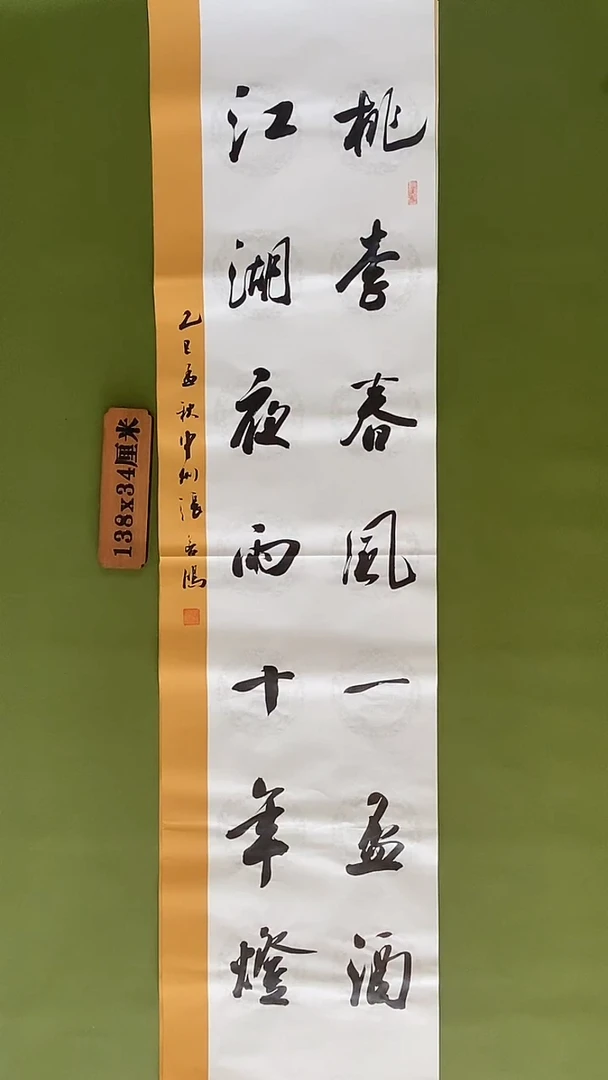 桃李春風一盃酒
江湖夜雨十年燈
乙巳孟秋中州張鴻
138x34厘米